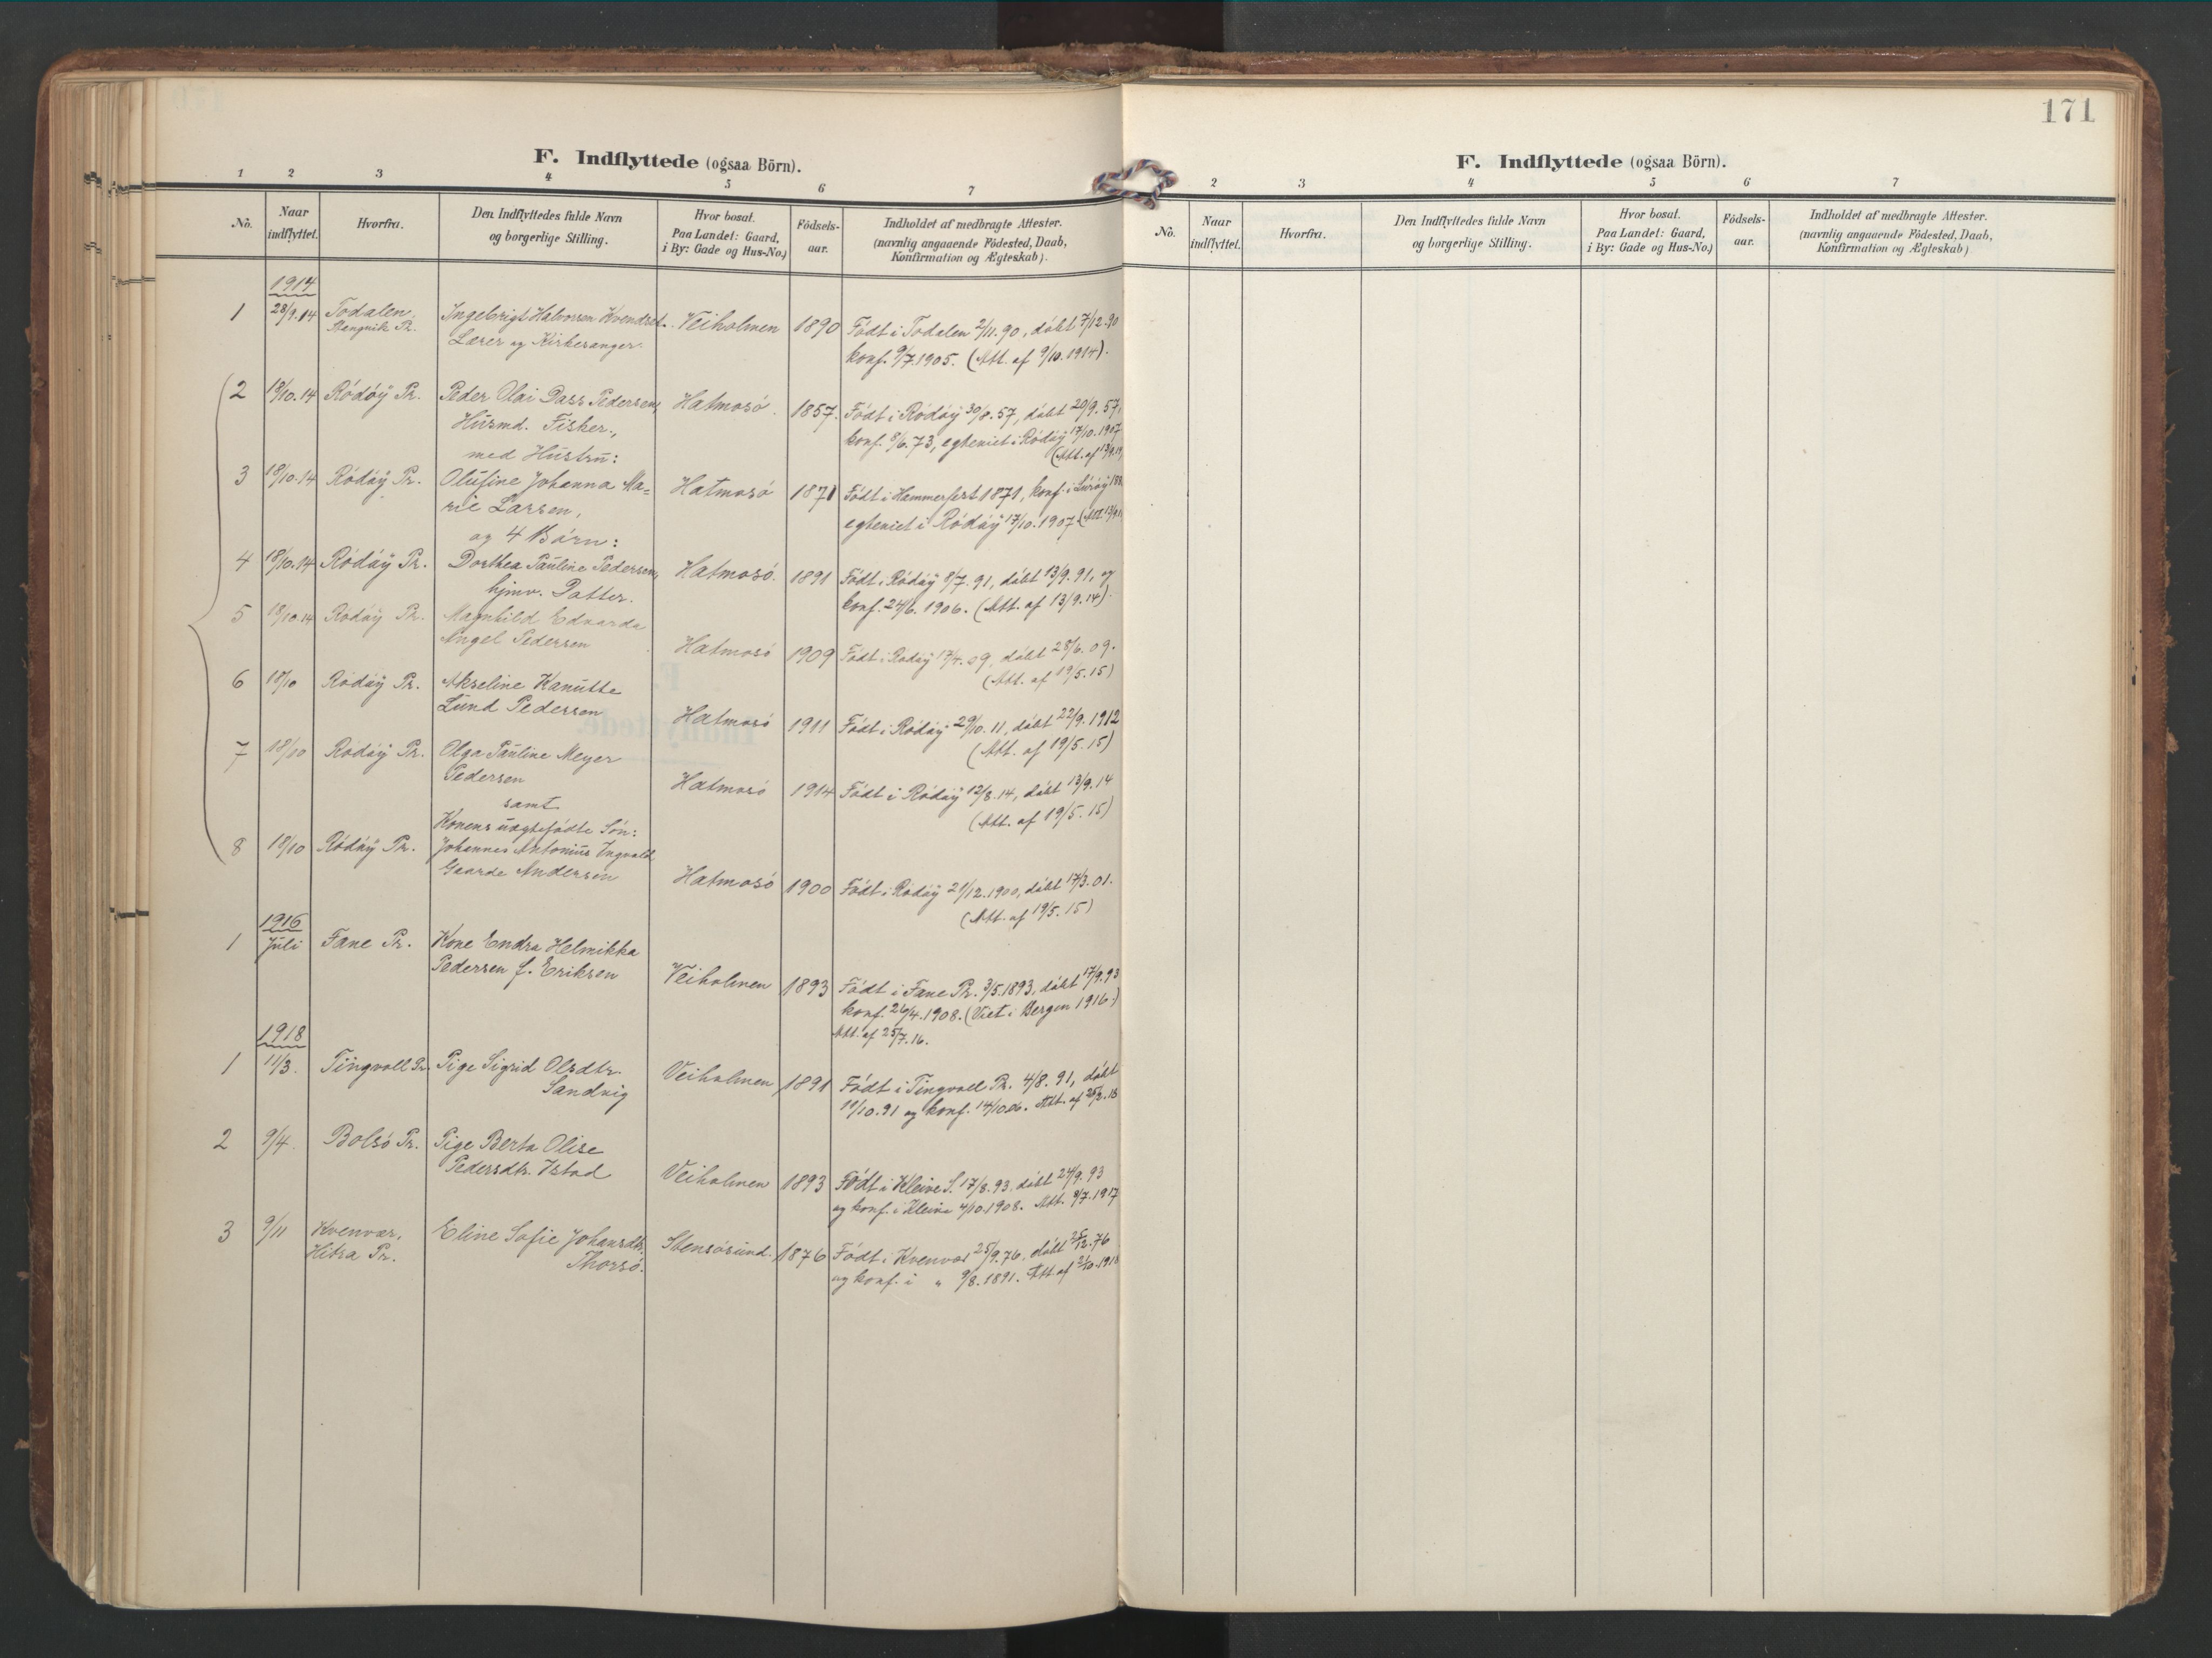 171
F. Indflyttede (ogsaa Börn).
1 2 3 4 5 6 7
No. Naar indflyttet. Hvorfra. Den Indflyttedes fulde Navn og borgerlige Stilling. Hvor bosat. Paa Landet: Gaard, i By: Gade og Hus-No.) Födsels-aar. Indholdet af medbragte Attester. (navnlig angaaende Födested, Daab, Konfirmation og Ægteskab).
1914
1 28/9.14 Todalen, Ingebrigt Halvorsen Kvendset. Veiholmen 1890 Födt i Todalen 2/11.90, döbt 7/12.90
Stangvik Pr. Lærer og Kirkesanger. konf. 9/7.1905. (Att. af 9/10.1914).
2 18/10.14 Rödöy Pr. Peder Olai Dass Pedersen, Hatmosö. 1857. Födt i Rödöy 30/8.57, döbt 20/9.57,
Husmd. Fisker., konf. 8/6.73, egteviet i Rödöy 17/10.1907
med Hustru: (Att. af 13/9.14)
3 18/10.14 Rödöy Pr. Olufine Johanna Ma= Hatmosö 1871 Födt i Hammerfest 1871, konf. i Luröy
rie Larsen, egteviet i Rödöy 17/10.1907
og 4 Börn:
4 18/10.14 Rödöy Pr. Dorthea Pauline Pedersen, Hatmosö. 1891 Födt i Rödöy 8/7.91, döbt 13/9.91, og
hjmv. Datter. konf. 24/6.1906. (Att. af 13/9.14).
5 18/10.14 Rödöy Pr. Magnhild Edvarda
Angel Pedersen Hatmosö 1909 Födt i Rödöy 17/4.09, döbt 28/6.09.
(Att. af 19/5.15)
6 18/10 Rödöy Pr. Akseline Kanutte
Lund Pedersen Hatmosö 1911 Födt i Rödöy 29/10.11, döbt 22/9.1912
(Att. af 19/5.15)
7 18/10 Rödöy Pr. Olga Pauline Meyer
Pedersen Hatmosö 1914 Födt i Rödöy 12/8.14, döbt 13/9.14
samt (Att. af 19/5.15)
Konens uægtefödte Sön:
8 18/10 Rödöy Pr. Johannes Antonius Ingvald
Gaarde Andersen Hatmosö 1900 Födt i Rödöy 21/12.1900, döbt 17/3.01.
(Att. af 19/5.15)
1916
1 Juli Fane Pr. Kone Endra Helmikka
Pedersen f. Eriksen Veiholmen 1893 Födt i Fane Pr. 3/5.1893, döbt 17/9.93
konf. 26/4.1908. (Viet i Bergen 1916.)
Att. af 25/7.16.
1918
1 11/3. Tingvoll Pr. Pige Sigrid Olsdtr. Veiholmen 1891 Födt i Tingvoll Pr. 4/8.91, döbt
Sandvig 11/10.91 og konf. 14/10.06. Att. af 25/2.18
2 9/4. Bolsö Pr. Pige Berta Olise
Pedersdtr. Istad Veiholmen 1893 Födt i Kleive S. 17/8.93, döbt 24/9.93
og konf. i Kleive 4/10.1908. Att. 8/7.1917
3 9/11 Kvenvær, Eline Sofie Johansdtr. Stensösund. 1876 Födt i Kvenvær 25/9.76, döbt 25/12.76
Hitra Pr. Thorsö. og konf. i " 9/8.1891. Att af 2/10.1918
F. Indflyttede (ogsaa Börn).
2 3 4 5 6 7
No. Naar indflyttet. Hvorfra. Den Indflyttedes fulde Navn og borgerlige Stilling. Hvor bosat. Paa Landet: Gaard, i By: Gade og Hus-No.) Födsels-aar. Indholdet af medbragte Attester. (navnlig angaaende Födested, Daab, Konfirmation og Ægteskab)